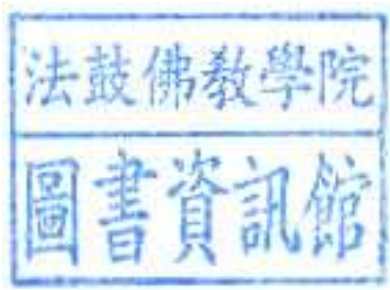 法鼓佛教學院
圖書資訊館